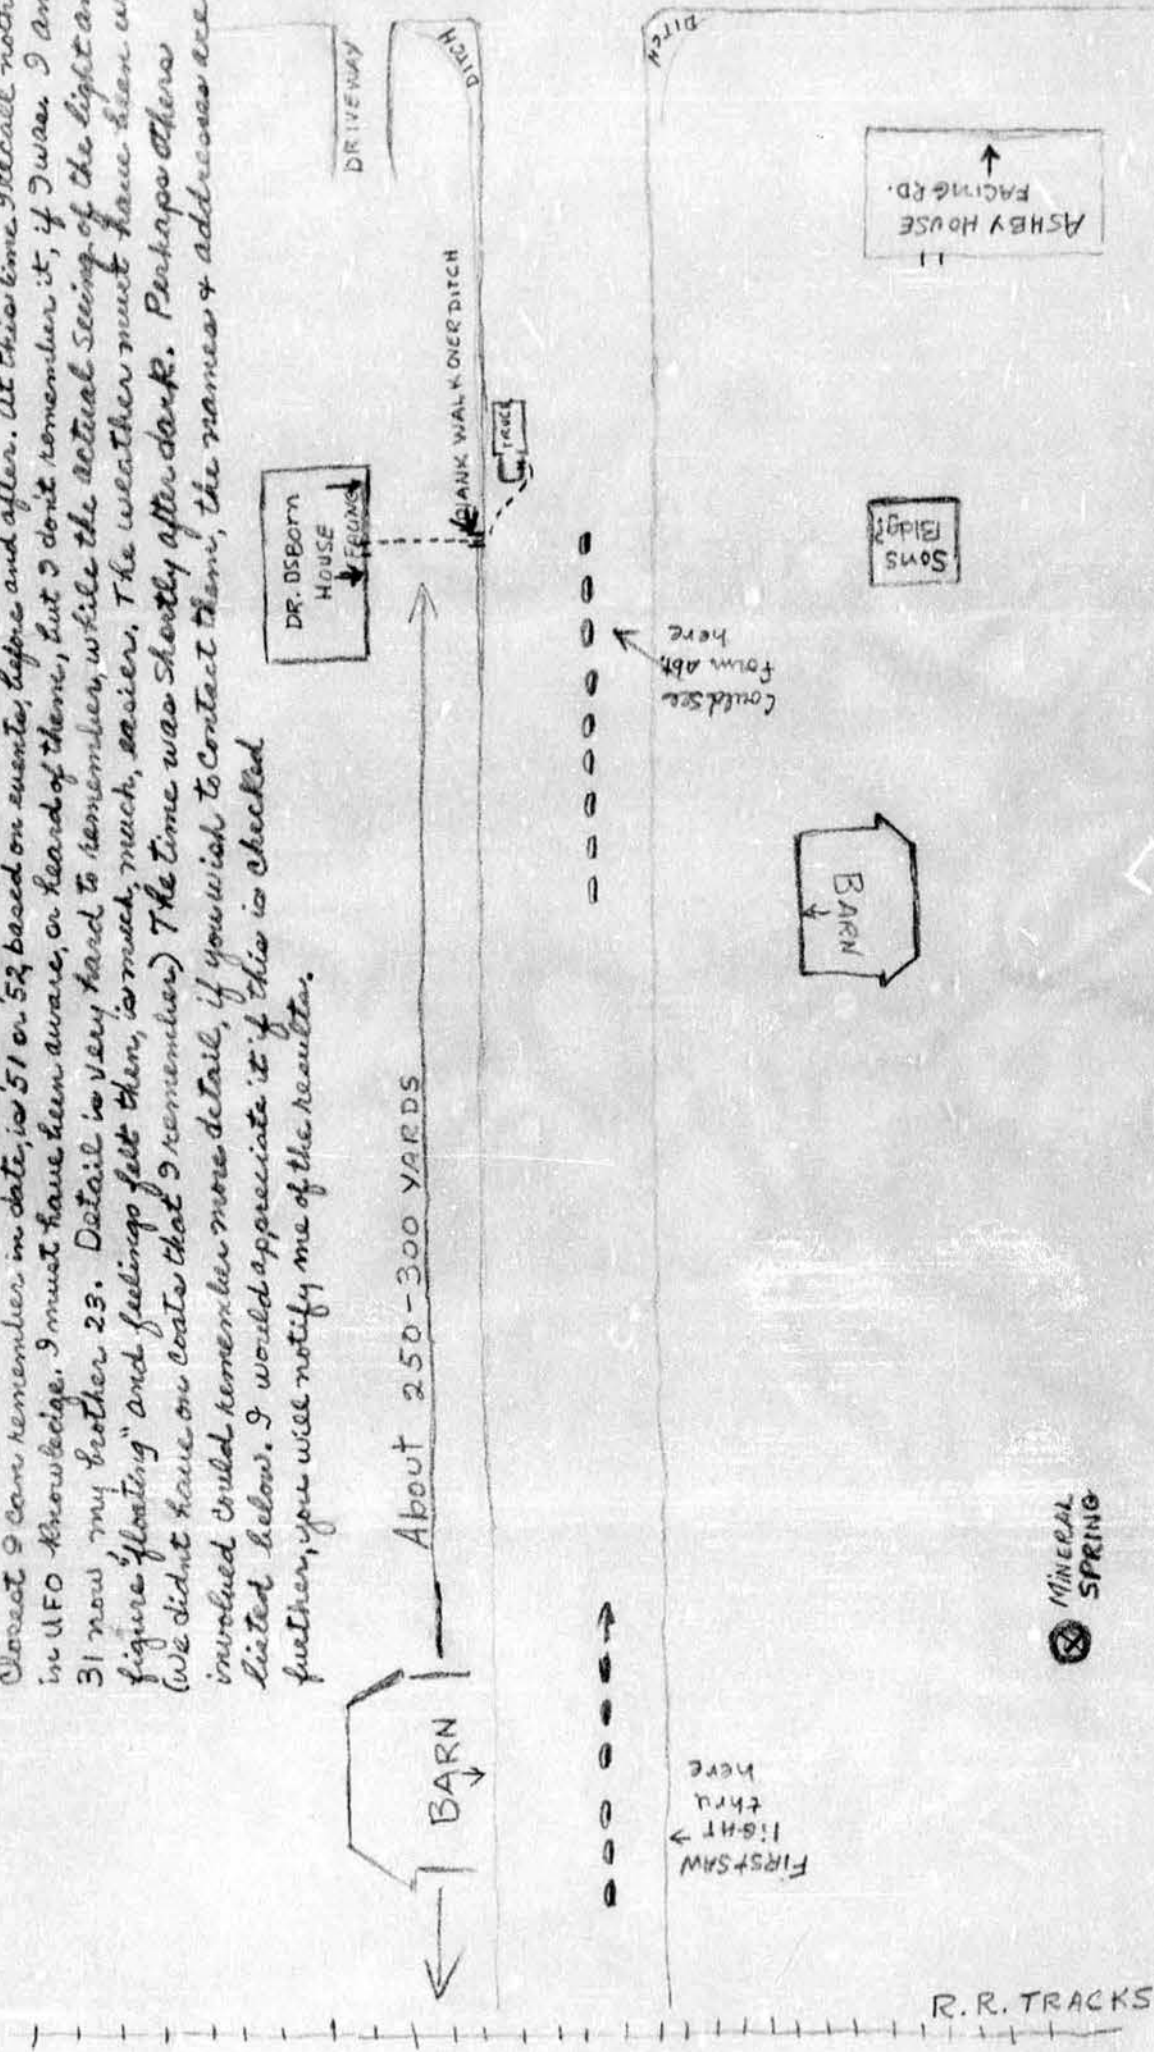 Closest I can remember in date, is '51 or '52, based on events, before and after. At this time I recall
in UFO Knowledge. I must have been aware, or heard of them, but I don't remember it, if I was. I am
31 now my brother 23. Detail is very hard to remember, while the actual seeing of the light
figure "floating" and feelings felt then, is much, much, much, easier. The weather must have been
(We didn't have on coats that I remember) The time was shortly after dark. Perhaps others
involved could remember more detail, if you wish to contact them, the names & addresses are
listed below. I would appreciate it if this is checked
further, you will notify me of the results.
DRIVEWAY
DITCH
DITCH
DR. OSBORN
HOUSE
FACING
PLANK WALK OVER DITCH
TRUCK
ASHBY HOUSE
FACING RD.
Sons
Bldg?
Could see
form abt.
here
About 250-300 YARDS
BARN
BARN
FIRST SAW
LIGHT
thru
here
MINERAL
SPRING
R.R. TRACKS